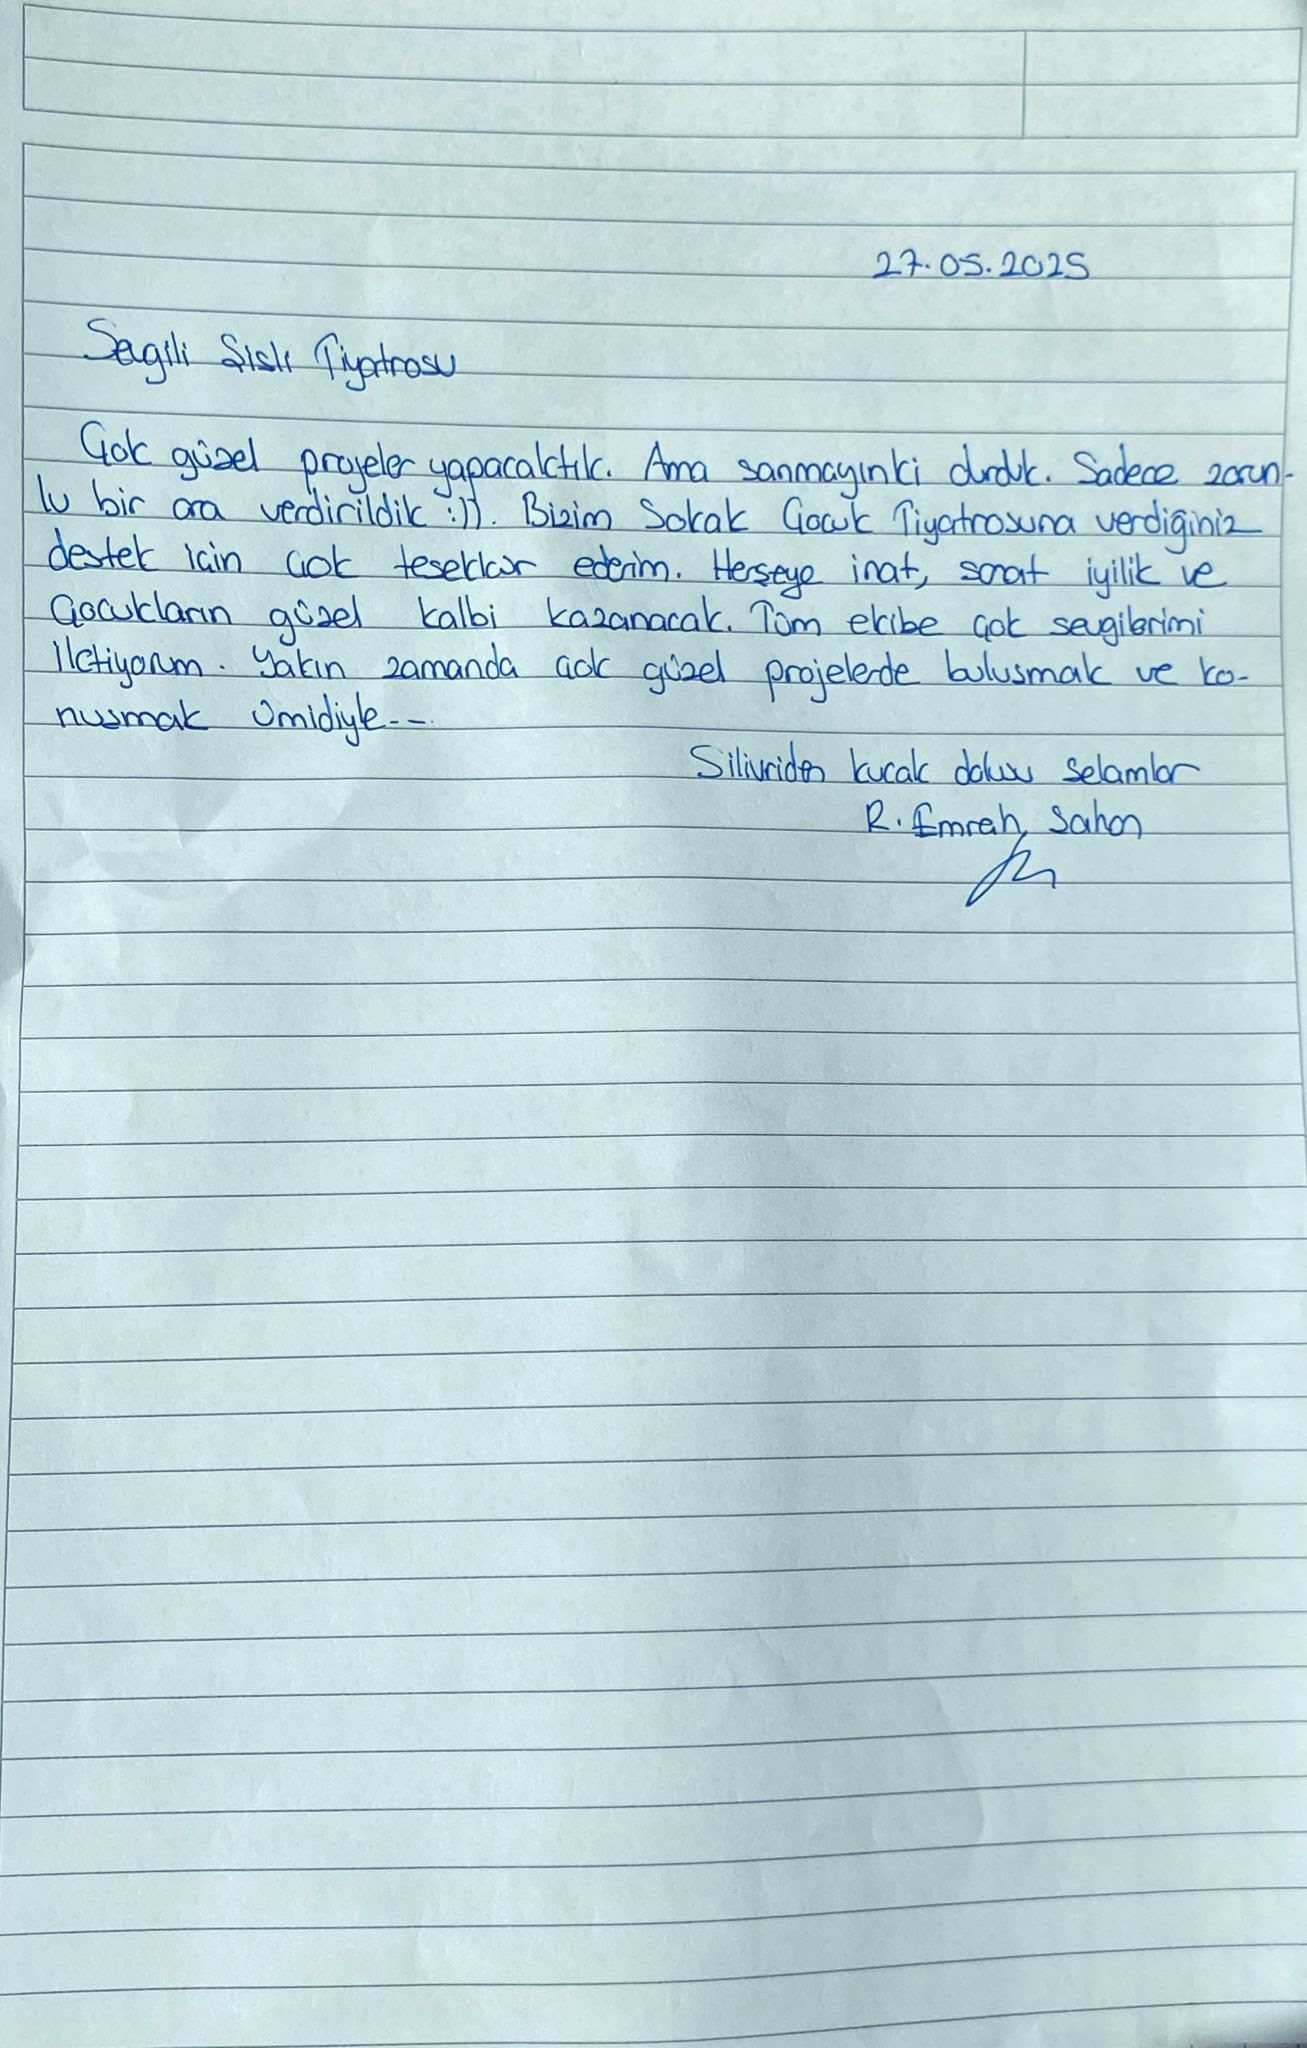 27.05.2025
Saygili Şişli Tiyatrosu
Çok güzel projeler yapacaktık. Ama sanmayınki durduk. Sadece zorun-
lu bir ara verdirildik :)). Bizim Sokak Çocuk Tiyatrosuna verdiğiniz
destek için çok teşekkür ederim. Herşeye inat, sanat iyilik ve
Çocukların güzel kalbi kazanacak. Tüm ekibe çok sevgilerimi
iletiyorum. Yakın zamanda çok güzel projelerde bulusmak ve ko-
nusmak ümidiyle...
Silivriden kucak dolusu selamlar
R. Emrah Şahan